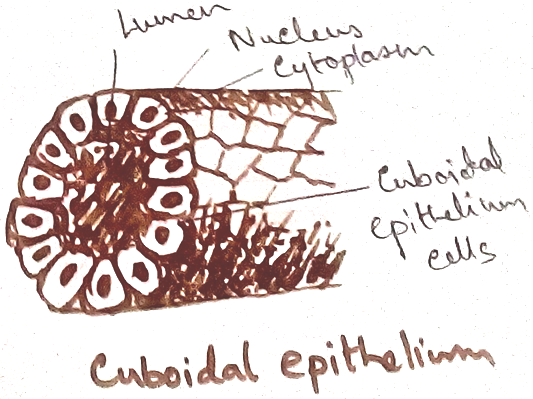 Lumen
Nucleus
Cytoplasm
Cuboidal
epithelium
cells
Cuboidal epithelium